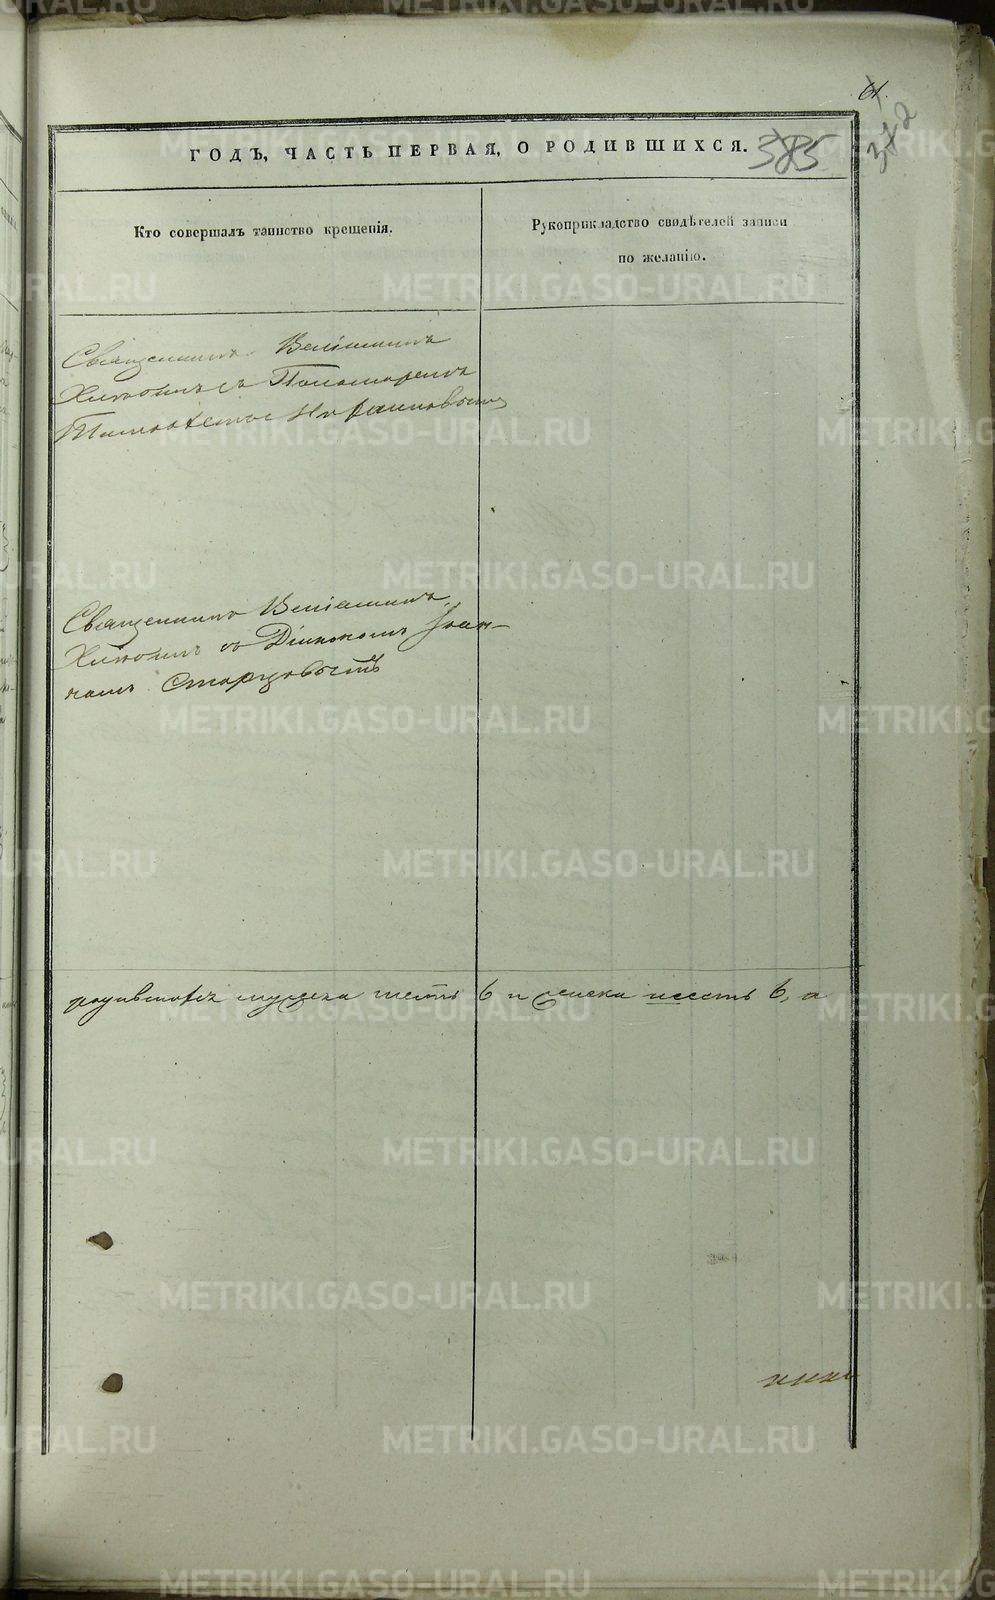 61.
342
ГОДЪ, ЧАСТЬ ПЕРВАЯ, О РОДИВШИХСЯ.
385
Кто совершалъ таинство крещенія.
Рукоприкладство свидѣтелей записи
по желанію.
Священникъ Веніаминъ
съ Пономаремъ
Священникъ Веніаминъ
съ Діакономъ Іоан-
номъ Старцовымъ
родившихся мужеска шесть 6 и женска шесть 6, а
METRIKI.GASO-URAL.RU